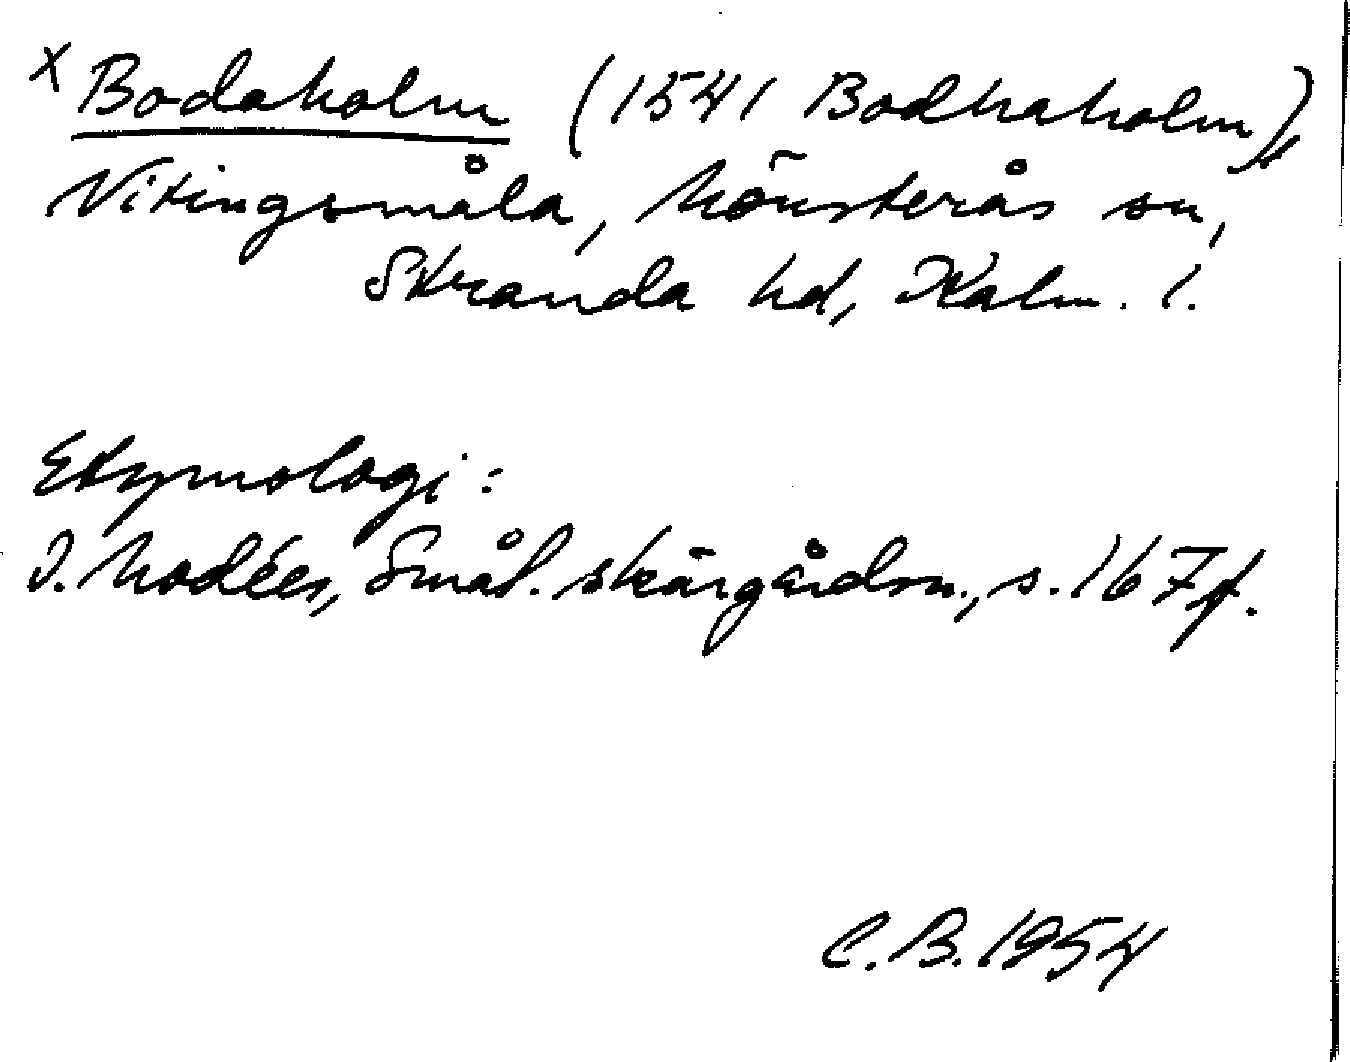 x Bodaholm (1541 Bodhaholm),
Vitingsmåla, Mönsterås sn,
Stranda hd, Kalm. l.
Etymologi:
I. Modéer, Smål. skärgårdsn., s. 167f.
C.B. 1954